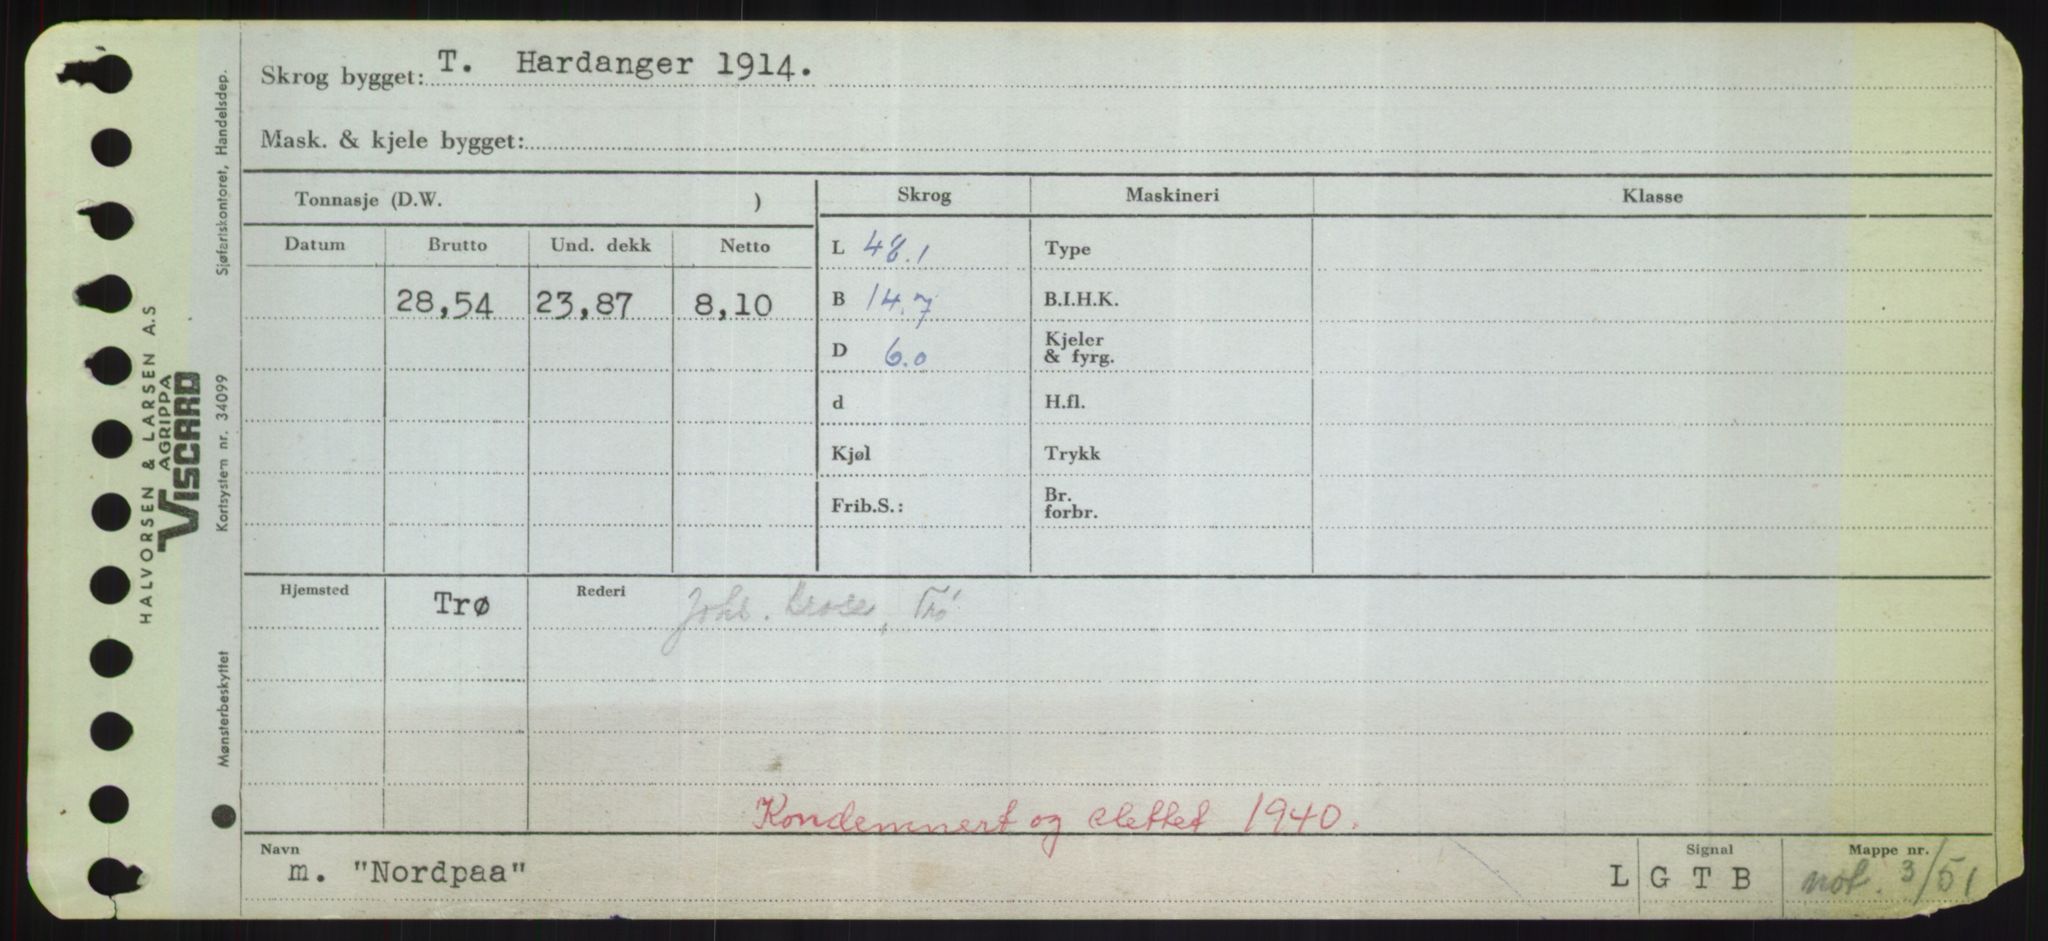 Skrog bygget: T. Hardanger 1914.
Mask. & kjele bygget:
Tonnasje (D.W. )
Datum Brutto Und. dekk Netto
28,54 23,87 8,10
Skrog Maskineri Klasse
L 48.1 Type
B 14.7 B.I.H.K.
D 6.0 Kjeler & fyrg.
d H.fl.
Kjøl Trykk
Frib.S.: Br. forbr.
Hjemsted Trø Rederi Johs. , Trø
Kondemnert og slettet 1940.
Navn Signal Mappe nr.
m. "Nordpaa" L G T B not. 3/51
HALVORSEN & LARSEN A.S
AGRIPPA
VISCARD
Mønsterbeskyttet Kortsystem nr. 34099 Sjøfartskontoret, Handelsdep.